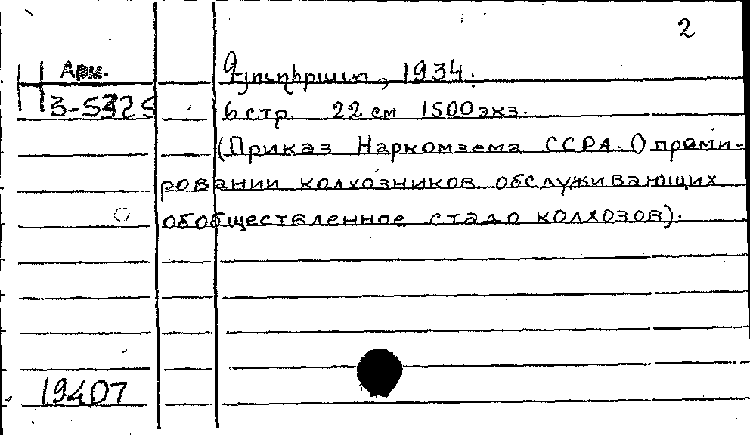 2
Арм.
Գյուղհրատ, 1934.
3-5325
6 стр. 22 см 1500 экз.
(Приказ Наркомзема ССРА. О преми-
ровании колхозников обслуживающих
обобществленное стадо колхозов).
19407